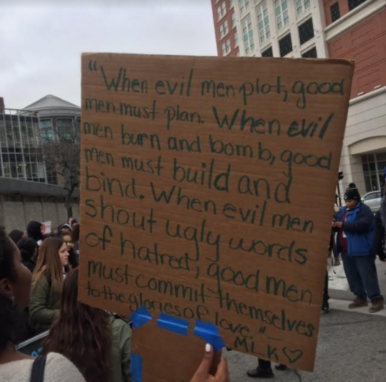 "When evil men plot, good
men must plan. When evil
men burn and bomb, good
men must build and
bind. When evil men
shout ugly words
of hatred, good men
must commit themselves
to the glories of love."-
MLK♡